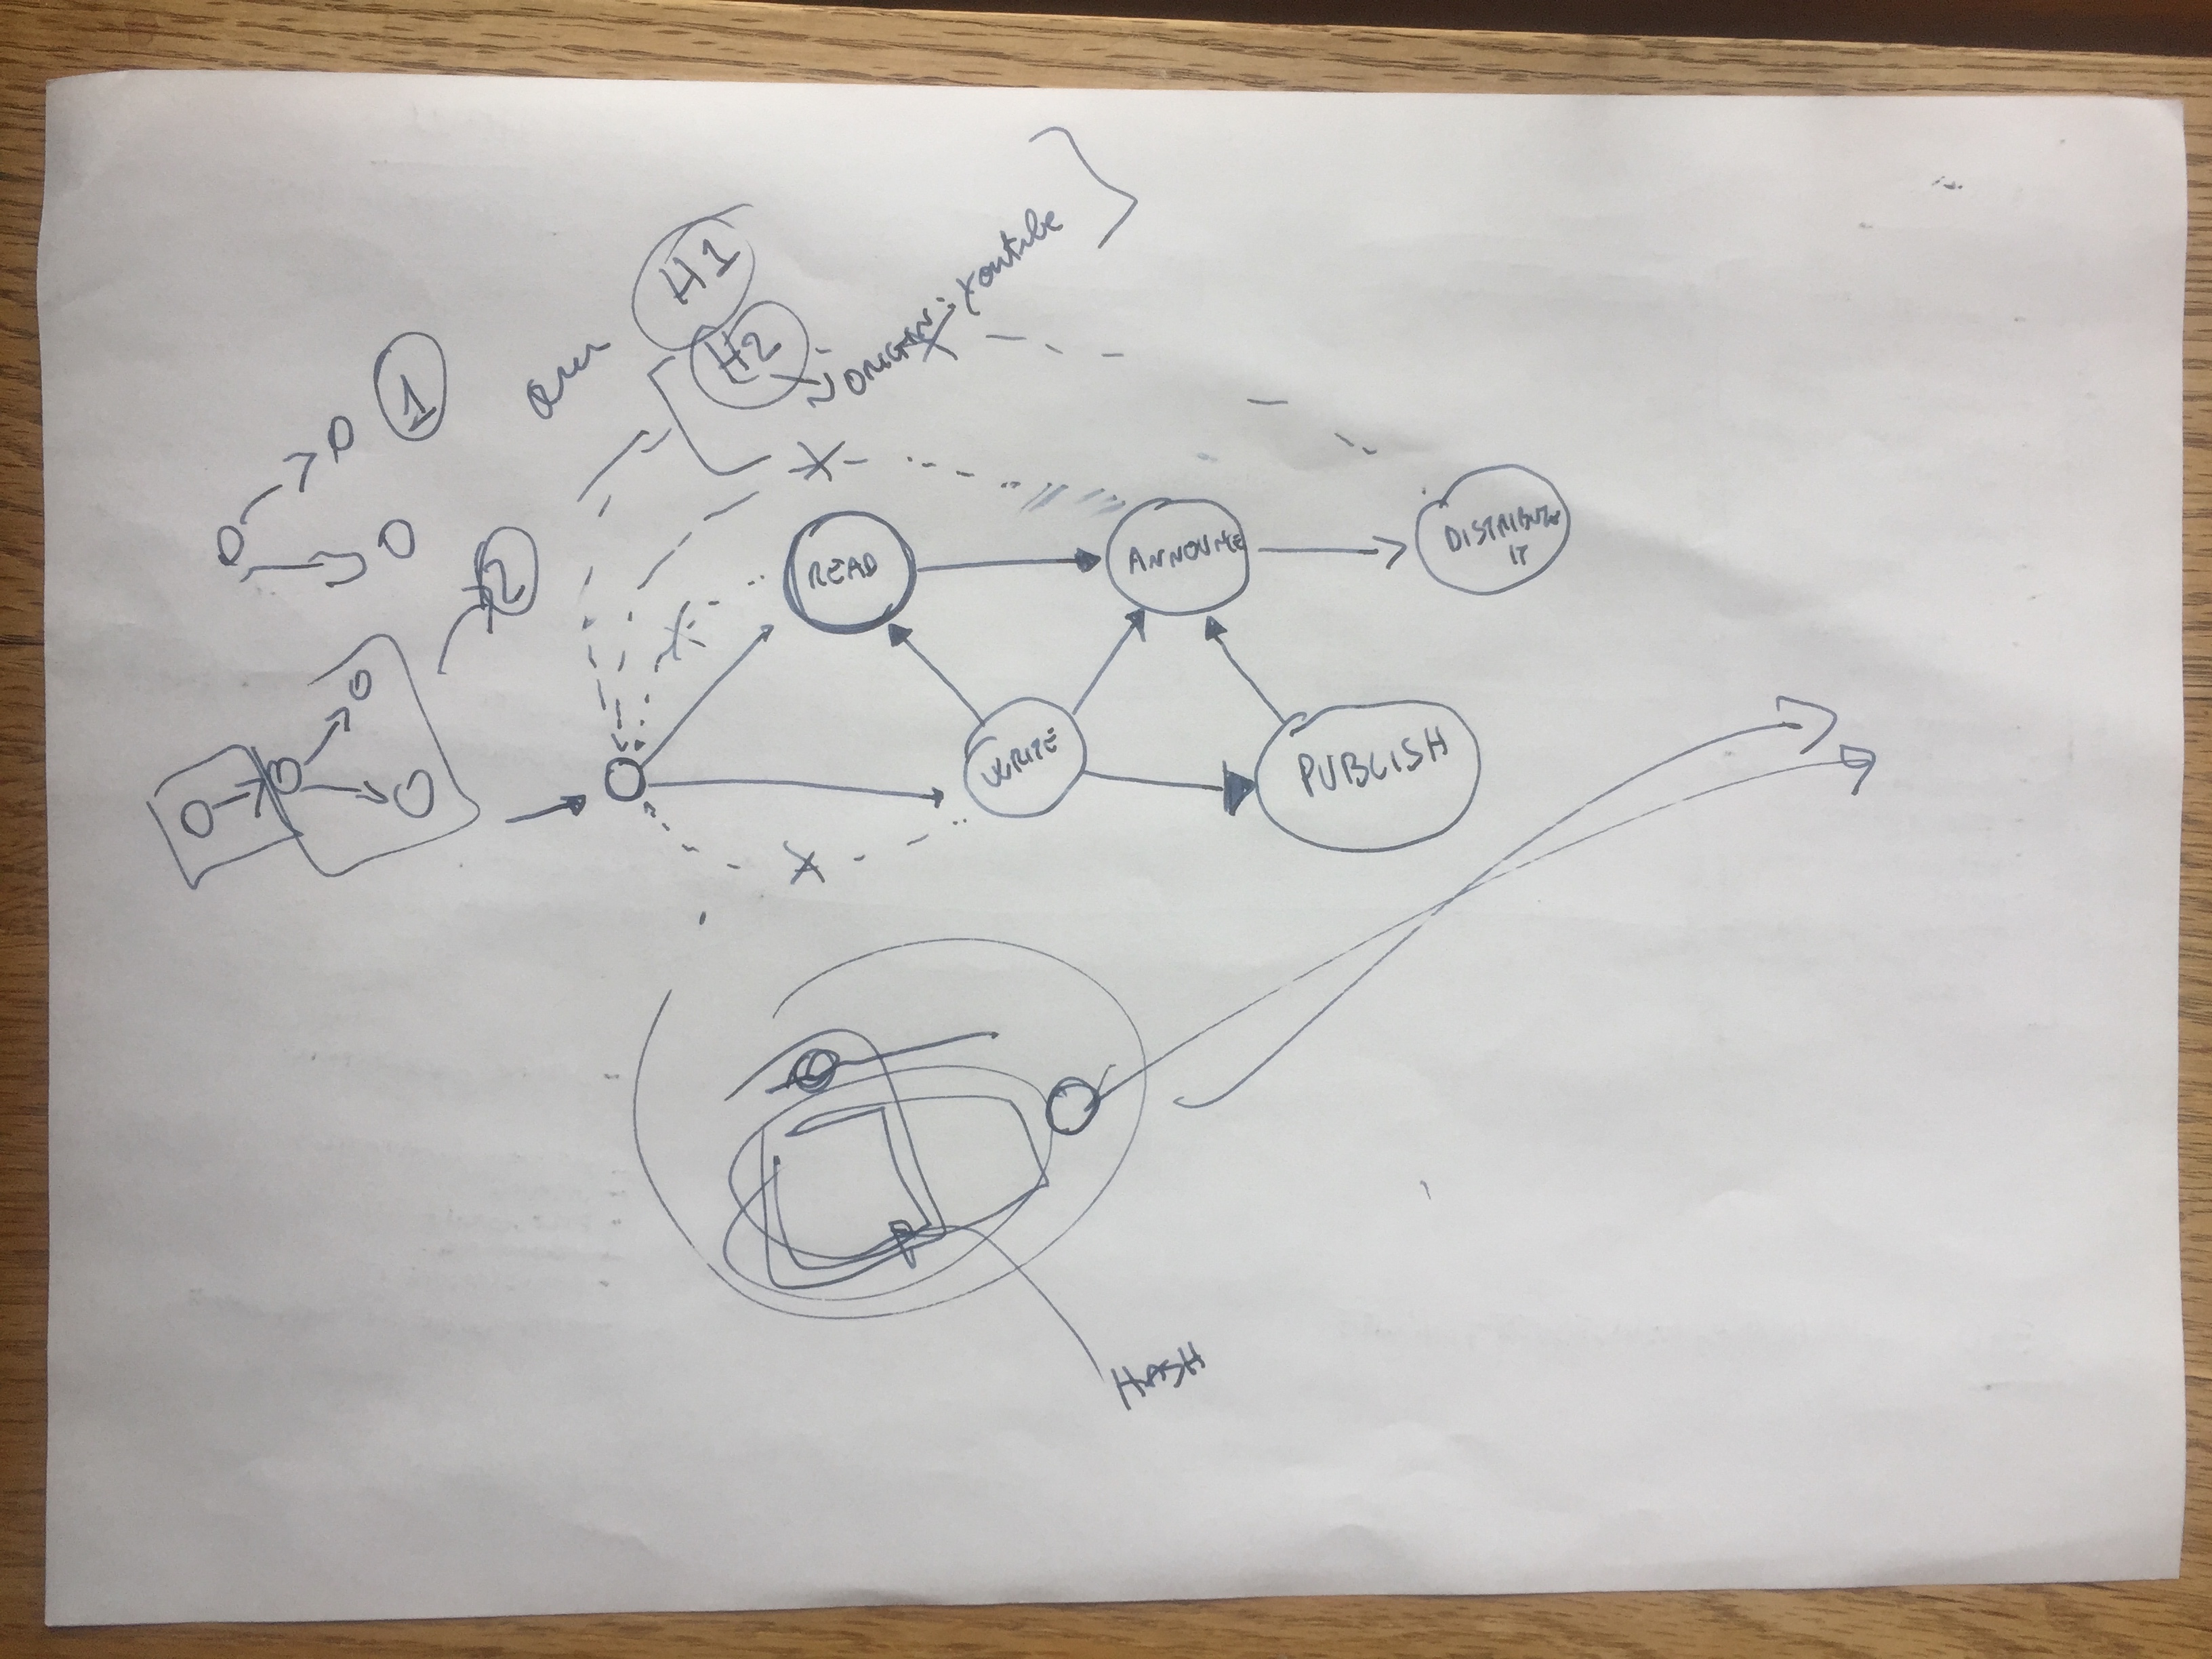 H1
H2
ORIGIN: Youtube
1
2
READ
ANNOUNCE
DISTRIBUTE
IT
WRITE
PUBLISH
HASH